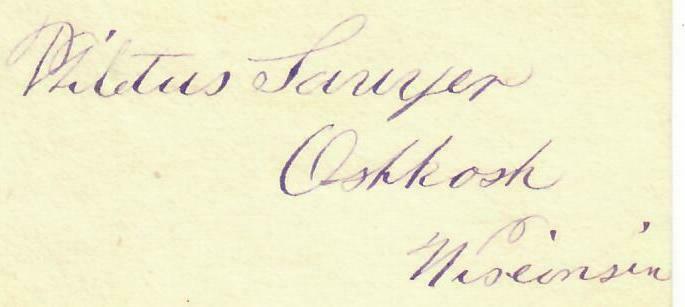 Philetus Sawyer
Oshkosh
Wisconsin